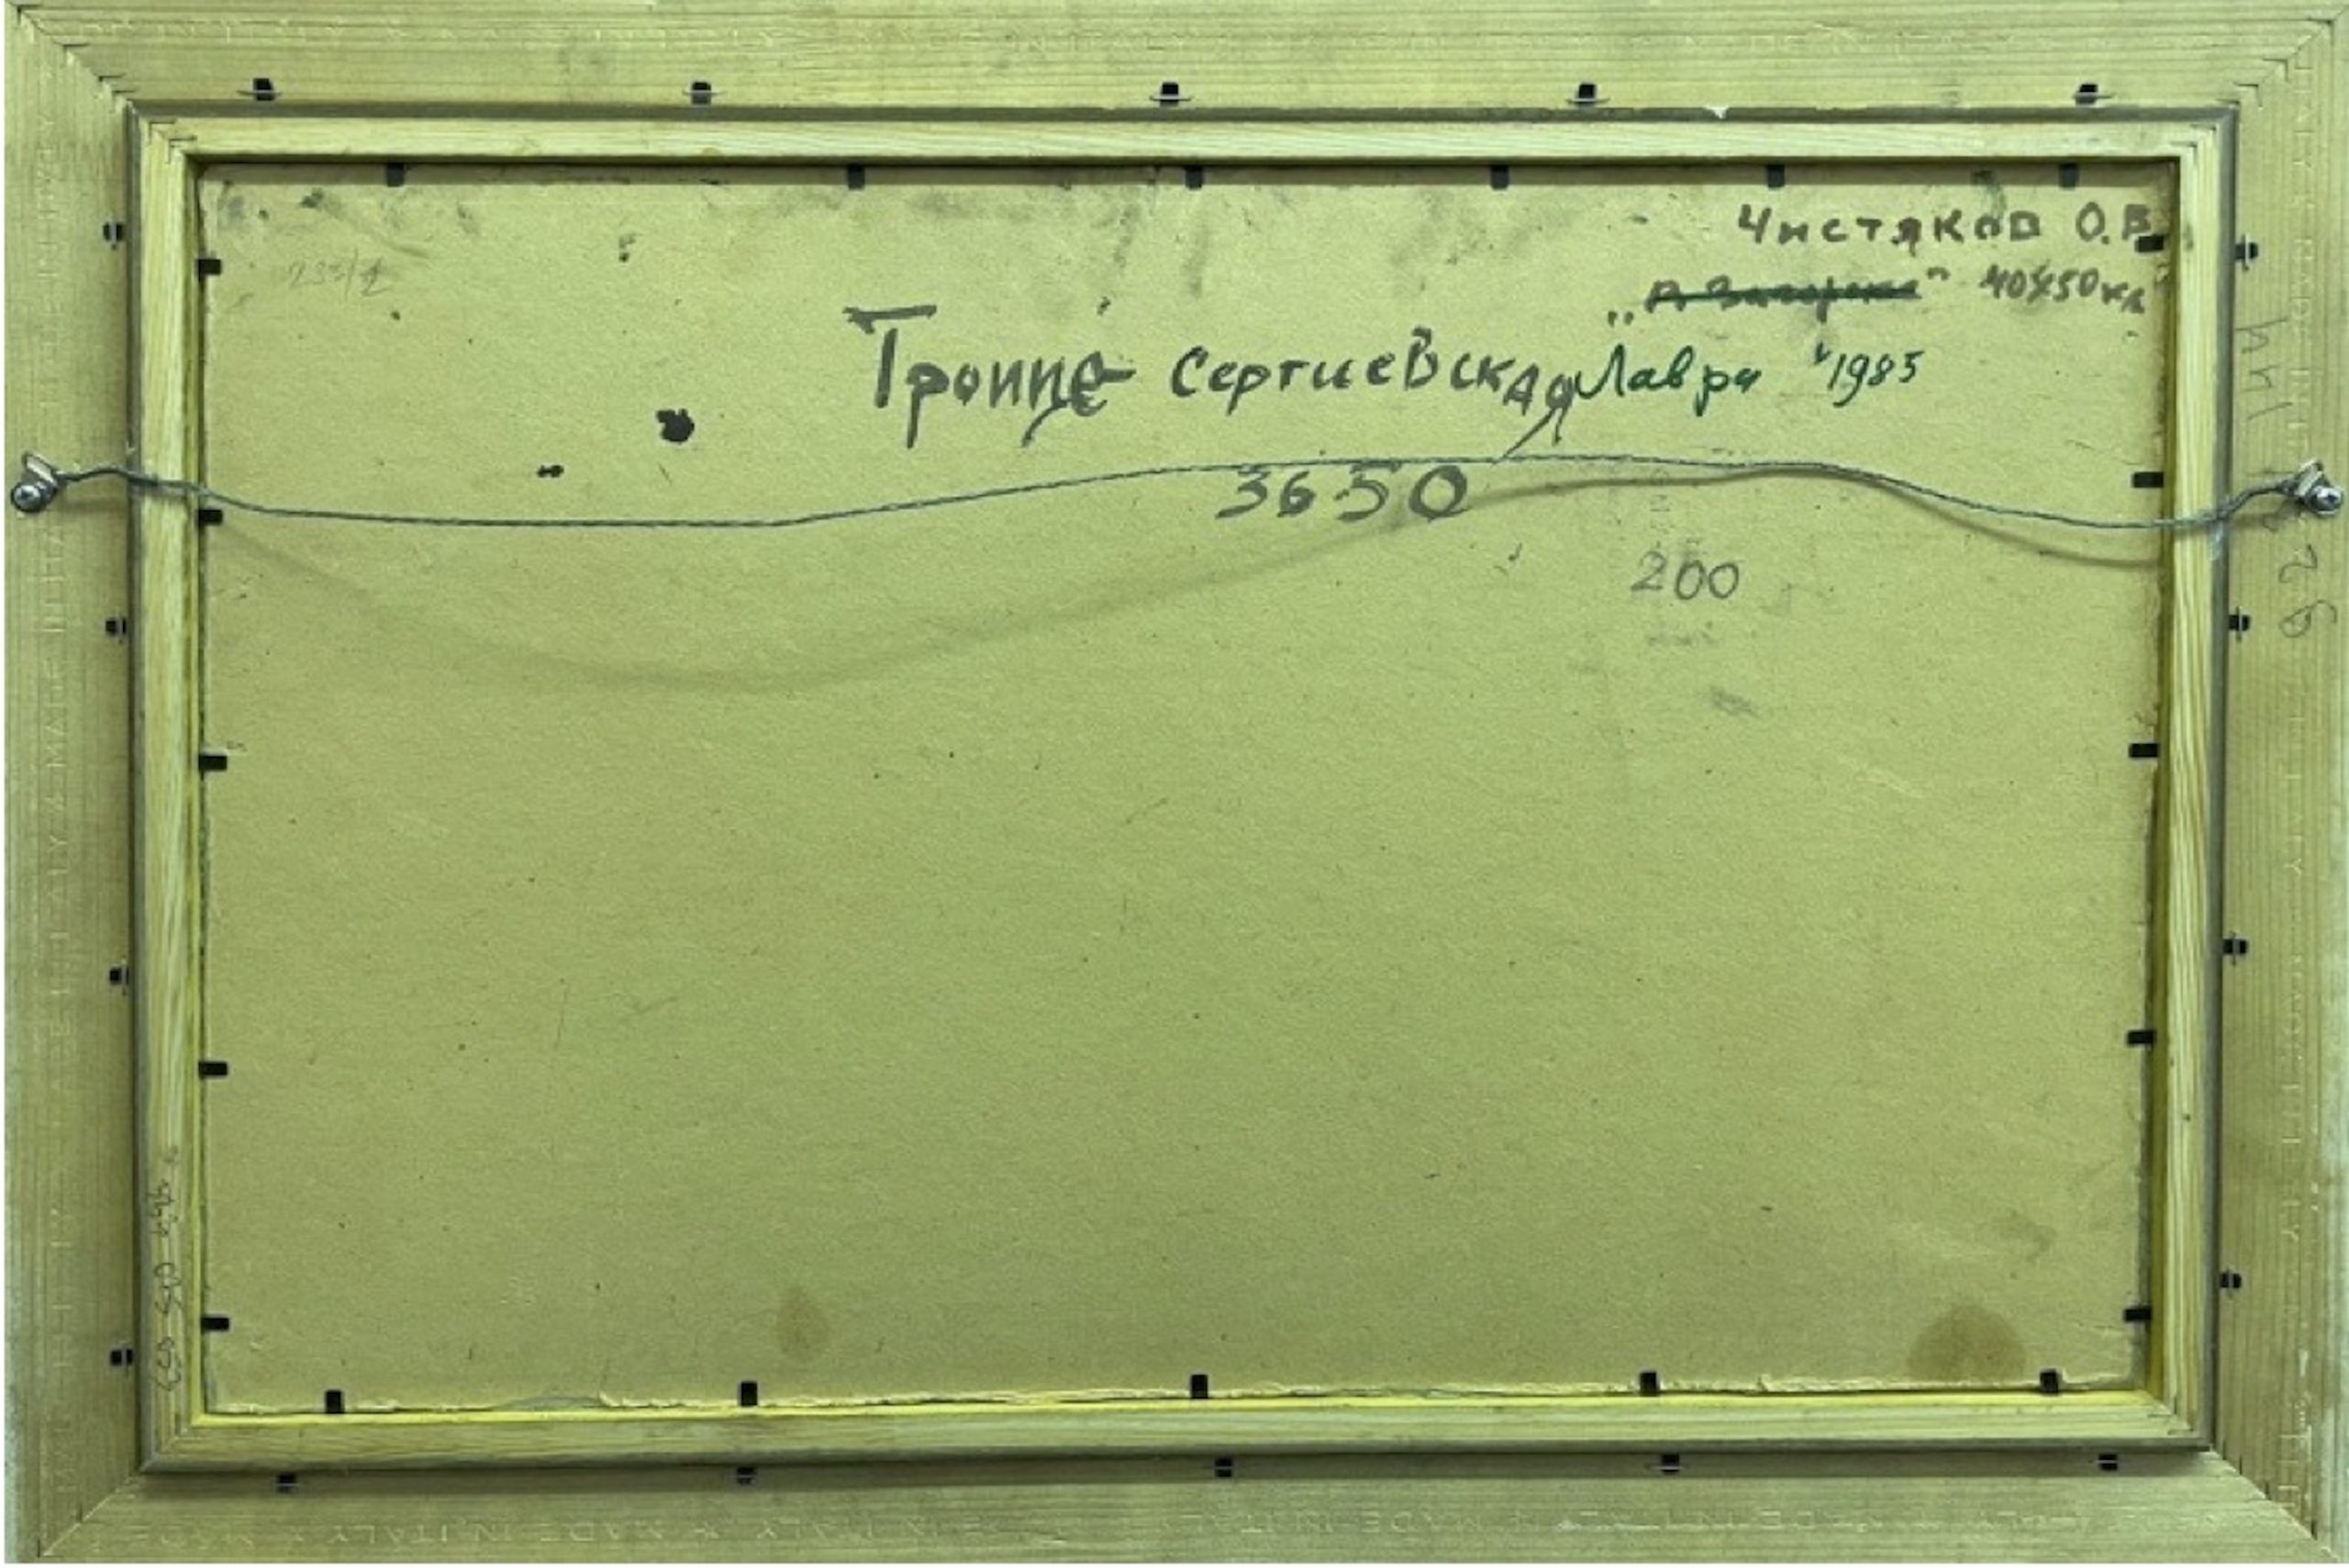 Чистяков О.В.
„В Загорске" 40x50 кл
Троице Сергиевская Лавра 1985
3650
200
MADE IN ITALY